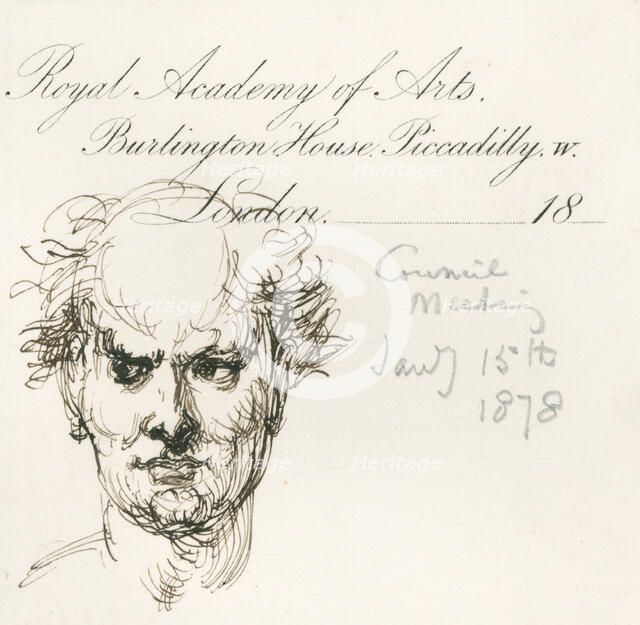 Royal Academy of Arts.
Burlington House. Piccadilly. W.
London. 18
Council
Meeting
Jany 15th
1878
Heritage
Heritage
Heritage
Heritage
Heritage
Heritage